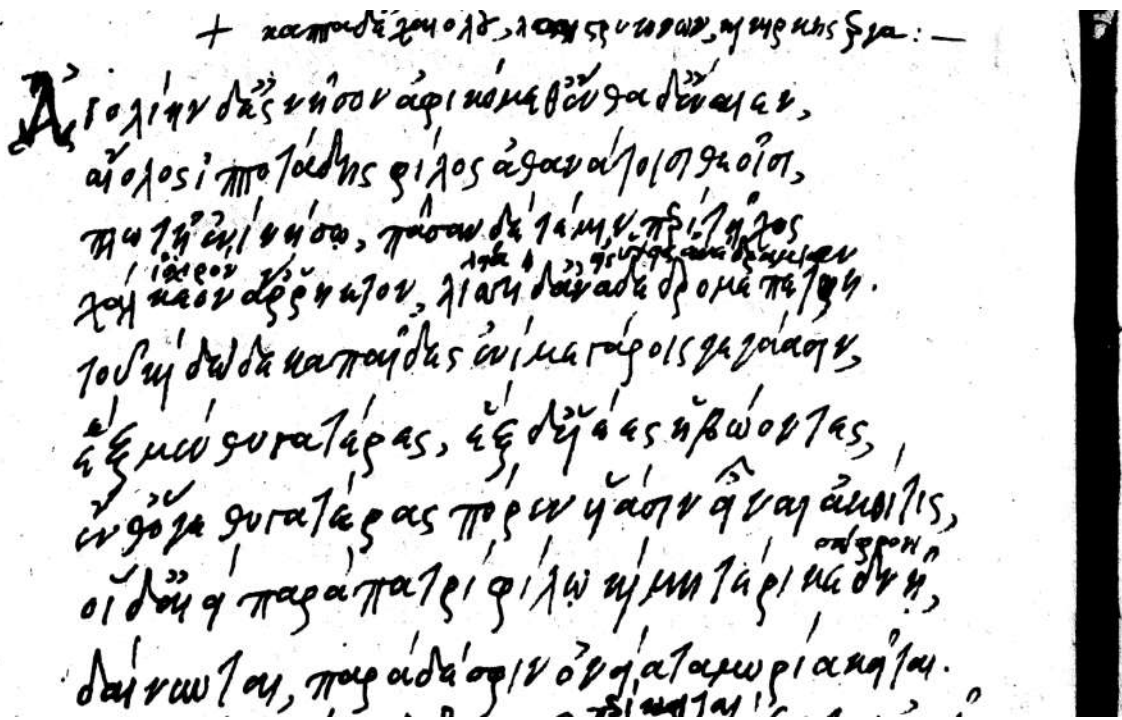 + κάππα δ' ἔχει
Αἰολίην δ' ἐς νῆσον ἀφικόμεθ' ἔνθα δ' ἔναιεν,
αἴολος ἱπποτάδης φίλος ἀθανάτοισι θεοῖσι,
πλωτῇ ἐνὶ νήσῳ, πᾶσαν δέ τέ μιν πέρι τεῖχος
χάλκεον ἄρρηκτον, λισσὴ δ' ἀναδέδρομε πέτρη.
τοῦ καὶ δώδεκα παῖδες ἐνὶ μεγάροις γεγάασιν,
ἓξ μὲν θυγατέρες, ἓξ δ' υἱέες ἡβώοντες,
ἔνθ' ὅγε θυγατέρας πόρεν υἱάσιν εἶναι ἀκοίτις,
σώφρονι
οἱ δ' αἰεὶ παρὰ πατρὶ φίλῳ καὶ μητέρι κεδνῇ,
δαίνυνται, παρὰ δέ σφιν ὀνείατα μυρία κεῖται.